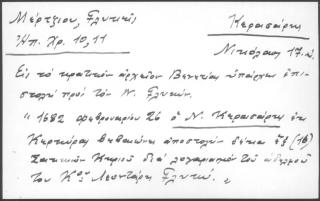 Μέρτζιου, Γλυκεῖς
Ἠπ. Χρ. 10, 11
Κερασάρης
Νικόλαος 17.αι.
Εἰς τὸ κρατικὸν ἀρχεῖον Βενετίας ὑπάρχει ἐπι-
στολὴ πρὸς τὸν Ν. Γλυκύν.
"1682 φεβρουαρίου 26 ὁ Ν. Κερασάρης ἐκ
Κερκύρας βεβαιώνει ἀποστολὴν δέκα ἓξ (16)
κηρίου διὰ λογαριασμὸν τοῦ ἀδελφοῦ
του Κου Λεοντάρη Γλυκύ.